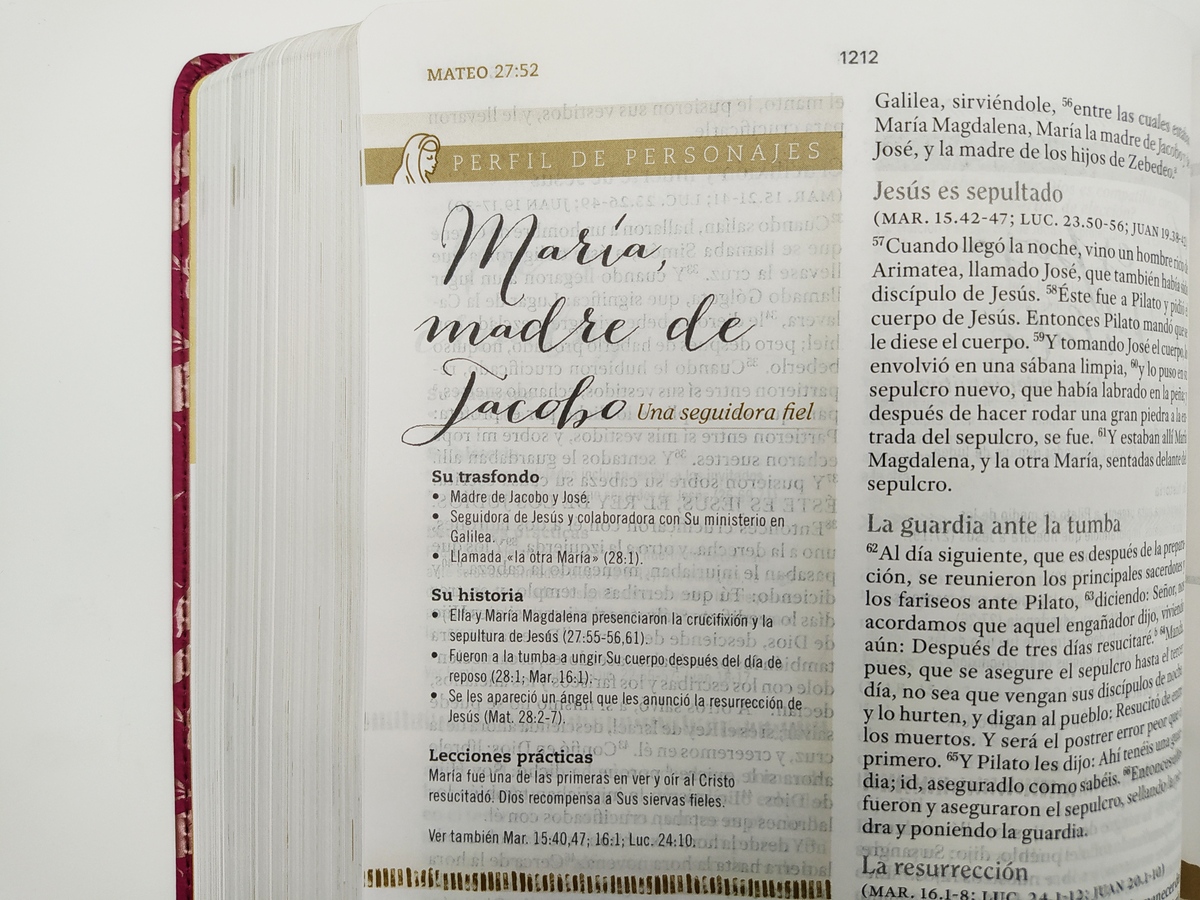 MATEO 27:52
1212
PERFIL DE PERSONAJES
María,
madre de
Jacobo Una seguidora fiel
Su trasfondo
• Madre de Jacobo y José.
• Seguidora de Jesús y colaboradora con Su ministerio en
Galilea.
• Llamada «la otra María» (28:1).
Su historia
• Ella y María Magdalena presenciaron la crucifixión y la
sepultura de Jesús (27:55-56,61).
• Fueron a la tumba a ungir Su cuerpo después del día de
reposo (28:1; Mar. 16:1).
• Se les apareció un ángel que les anunció la resurrección de
Jesús (Mat. 28:2-7).
Lecciones prácticas
María fue una de las primeras en ver y oír al Cristo
resucitado. Dios recompensa a Sus siervas fieles.
Ver también Mar. 15:40,47; 16:1; Luc. 24:10.
Galilea, sirviéndole, 56entre las cuales
María Magdalena, María la madre de Jacobo
José, y la madre de los hijos de Zebedeo.
Jesús es sepultado
(MAR. 15.42-47; LUC. 23.50-56; JUAN 19.38-42
57Cuando llegó la noche, vino un hombre rico
Arimatea, llamado José, que también había
discípulo de Jesús. 58Éste fue a Pilato y pidió
cuerpo de Jesús. Entonces Pilato mandó que
le diese el cuerpo. 59Y tomando José el cuerpo,
envolvió en una sábana limpia, 60y lo puso en
sepulcro nuevo, que había labrado en la peña;
después de hacer rodar una gran piedra a la en
trada del sepulcro, se fue. 61Y estaban allí
Magdalena, y la otra María, sentadas delante
sepulcro.
La guardia ante la tumba
62Al día siguiente, que es después de la prepara
ción, se reunieron los principales sacerdotes
los fariseos ante Pilato, 63diciendo: Señor,
acordamos que aquel engañador dijo, viviendo
aún: Después de tres días resucitaré. 64
pues, que se asegure el sepulcro hasta el tercer
día, no sea que vengan sus discípulos de noche
y lo hurten, y digan al pueblo: Resucitó de
los muertos. Y será el postrer error peor que
primero. 65Y Pilato les dijo: Ahí tenéis una
dia; id, aseguradlo como sabéis. 66Entonces
fueron y aseguraron el sepulcro, sellando la
dra y poniendo la guardia.
La resurrección
(MAR. 16.1-8; LUC. 24.1-12; JUAN 20.1-10)